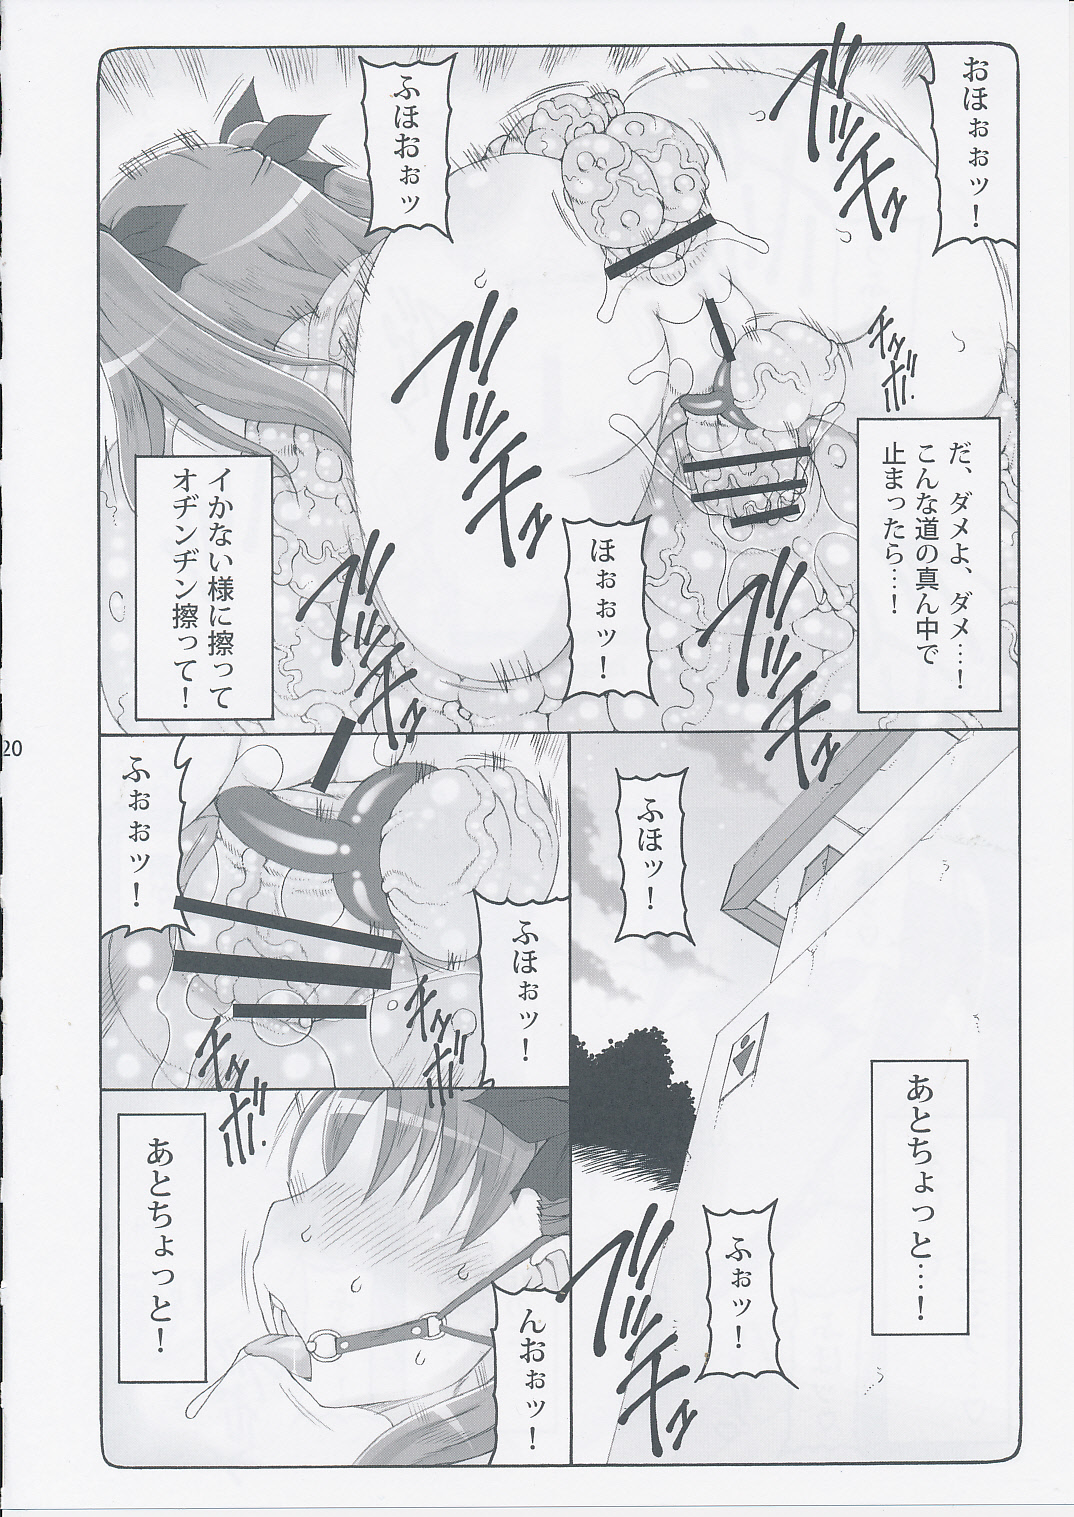 おほぉぉッ！
ブッ
ブッチュッ
ふほおぉッ
チュッ
ボッ
だ、ダメよ、ダメ…！
こんな道の真ん中で
止まったら…！
ほぉぉッ！
イかない様に擦って
オヂンヂン擦って！
ふほッ！
あとちょっと…！
ふぉッ！
ふぉぉッ！
ふほぉッ！
あとちょっと！
んおぉッ！
20